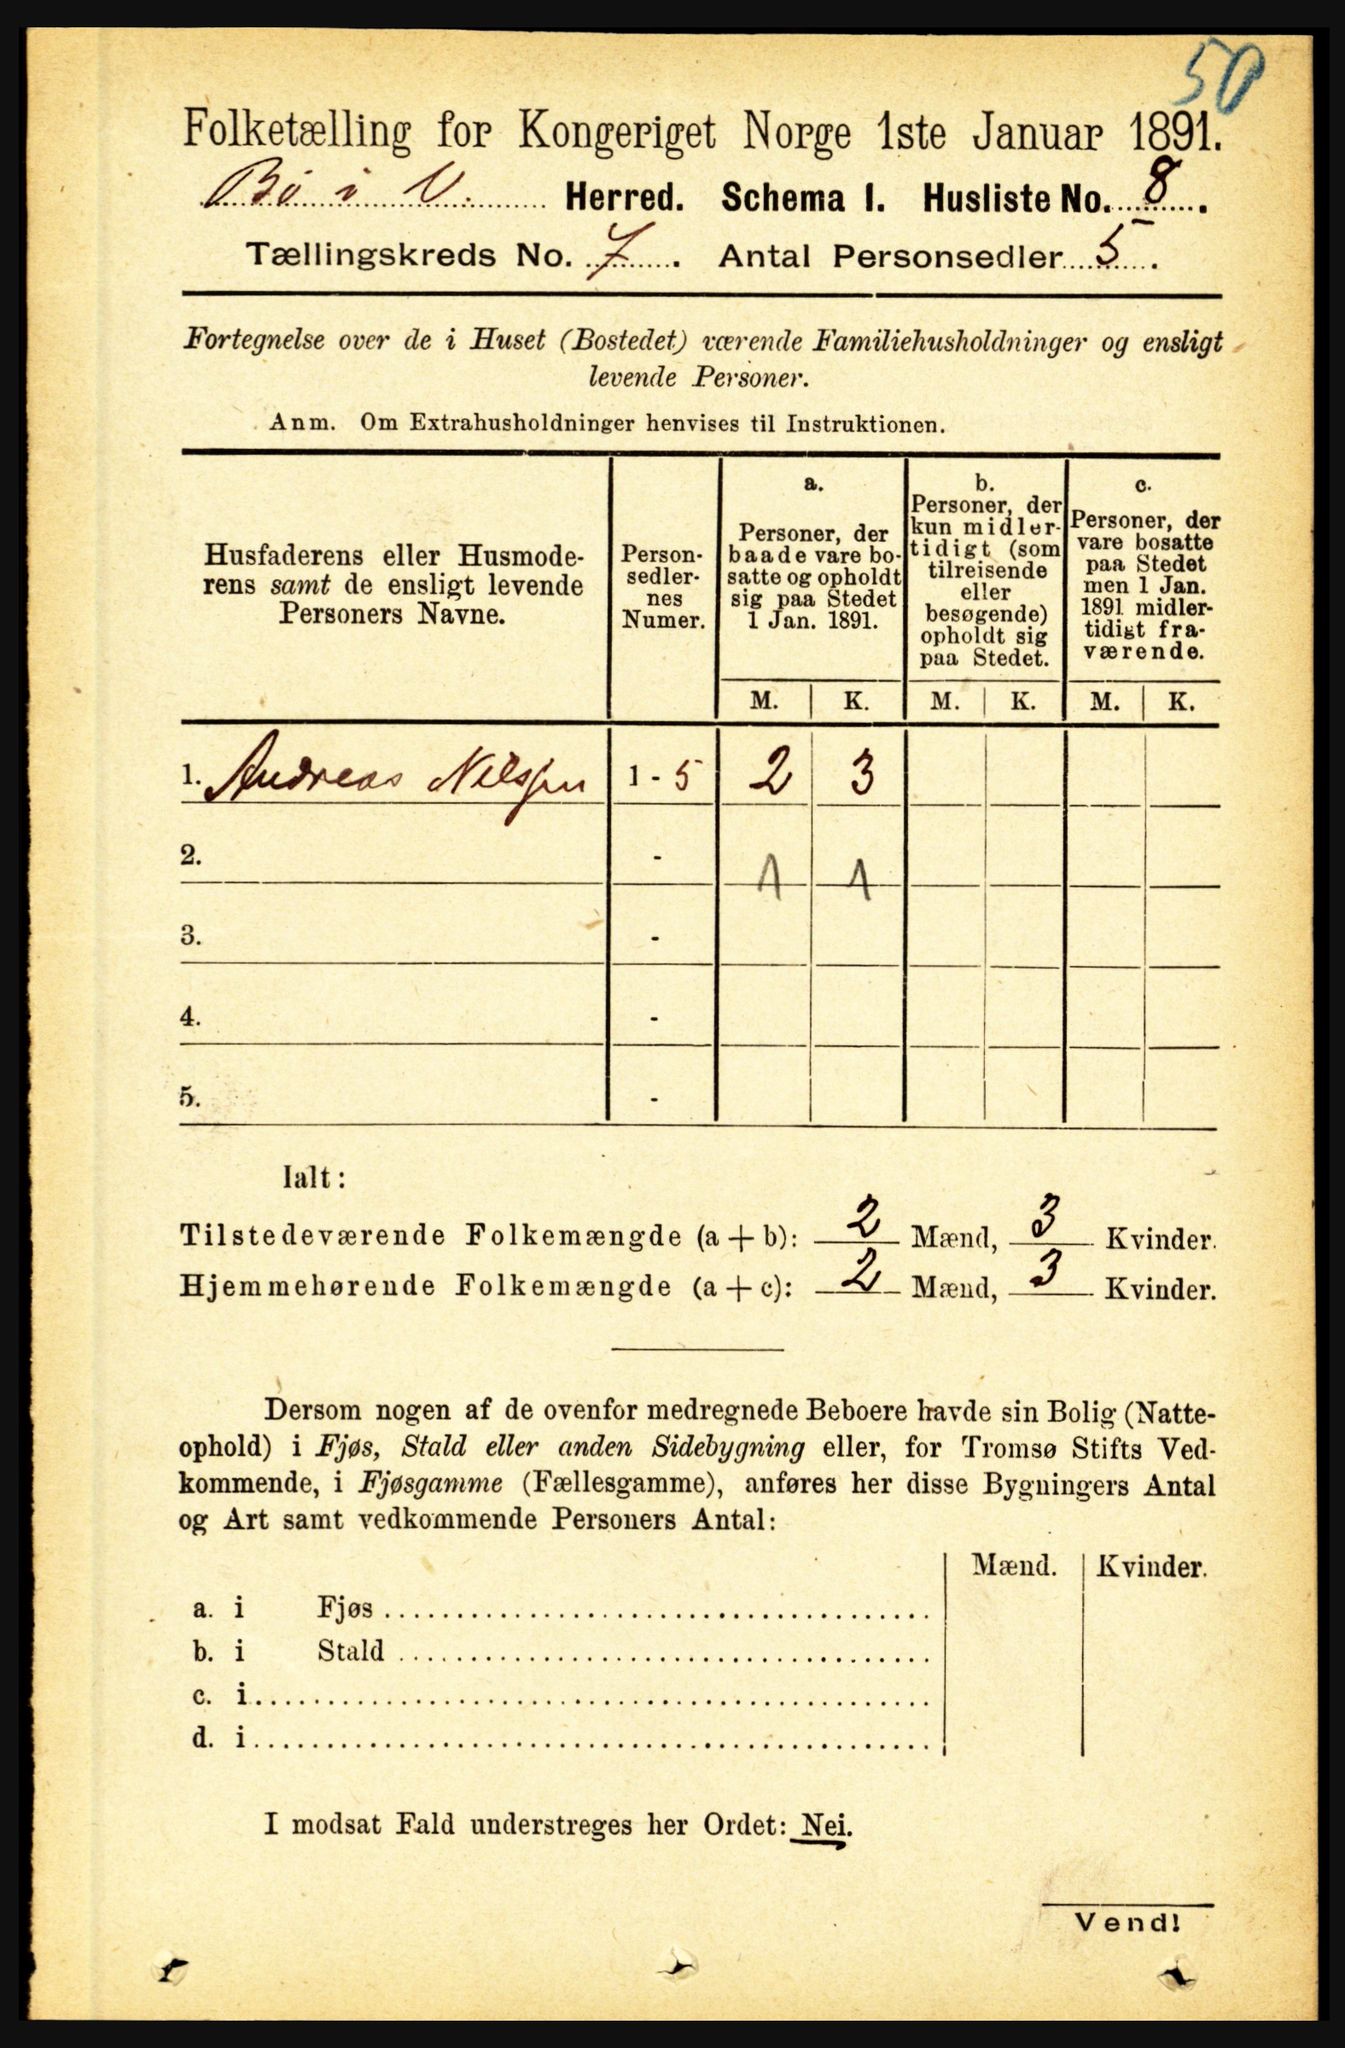 50
Folketælling for Kongeriget Norge 1ste Januar 1891.
Bø i V. Herred. Schema I. Husliste No. 8.
Tællingskreds No. 7. Antal Personsedler 5.
Fortegnelse over de i Huset (Bostedet) værende Familiehusholdninger og ensligt
levende Personer.
Anm. Om Extrahusholdninger henvises til Instruktionen.
Husfaderens eller Husmode-
rens samt de ensligt levende
Personers Navne.
Person-
sedler-
nes
Numer.
a.
Personer, der
baade vare bo-
satte og opholdt
sig paa Stedet
1 Jan. 1891.
b.
Personer, der
kun midler-
tidigt (som
tilreisende
eller
besøgende)
opholdt sig
paa Stedet.
c.
Personer, der
vare bosatte
paa Stedet
men 1 Jan.
1891 midler-
tidigt fra-
værende.
M. K. M. K. M. K.
1. Andreas Nilssen 1 - 5 2 3
2. - 1 1
3. -
4. -
5. -
Ialt:
Tilstedeværende Folkemængde (a + b): 2 Mænd, 3 Kvinder.
Hjemmehørende Folkemængde (a + c): 2 Mænd, 3 Kvinder.
Dersom nogen af de ovenfor medregnede Beboere havde sin Bolig (Natte-
ophold) i Fjøs, Stald eller anden Sidebygning eller, for Tromsø Stifts Ved-
kommende, i Fjøsgamme (Fællesgamme), anføres her disse Bygningers Antal
og Art samt vedkommende Personers Antal:
Mænd. Kvinder.
a. i Fjøs
b. i Stald
c. i
d. i
I modsat Fald understreges her Ordet: Nei.
Vend!